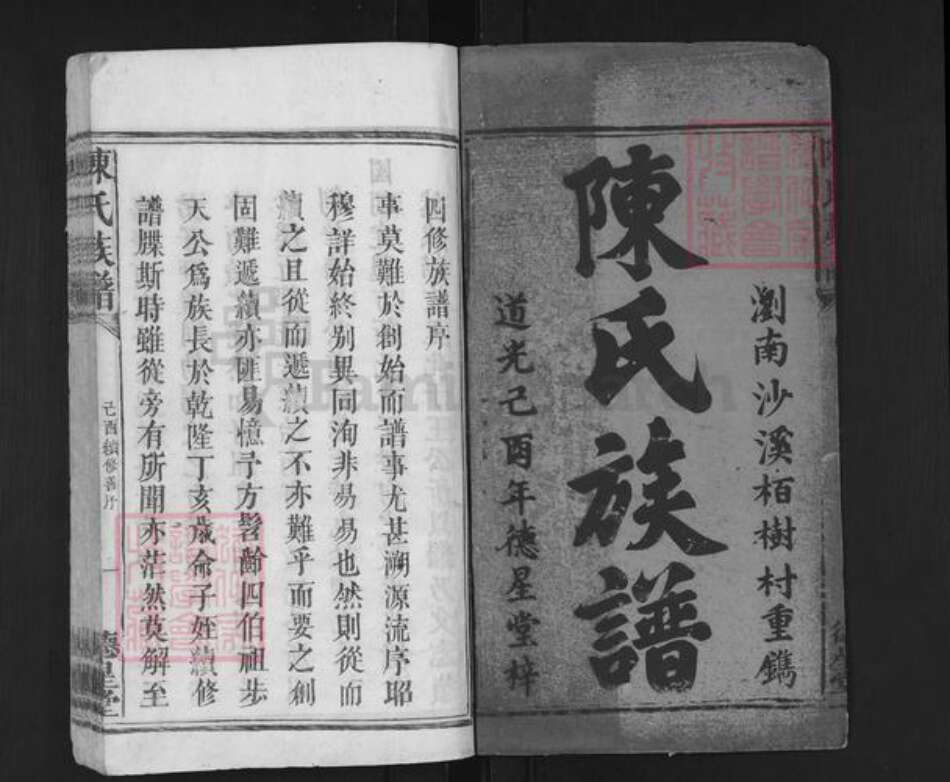 瀏南沙溪栢樹村重鐫
陳氏族譜
道光己酉年德星堂梓
四修族譜序
事莫難於創始而譜事尤甚溯源流序昭
穆詳始終别異同洵非易易也然則從而
續之且從而遞續之不亦難乎而要之創
固難遞續亦匪易憶予方髫齡四伯祖步
天公爲族長於乾隆丁亥歲命子姪續修
譜牒斯時雖從旁有所聞亦茫然莫解至
陳氏族譜
己酉續修譜序
一
德星堂